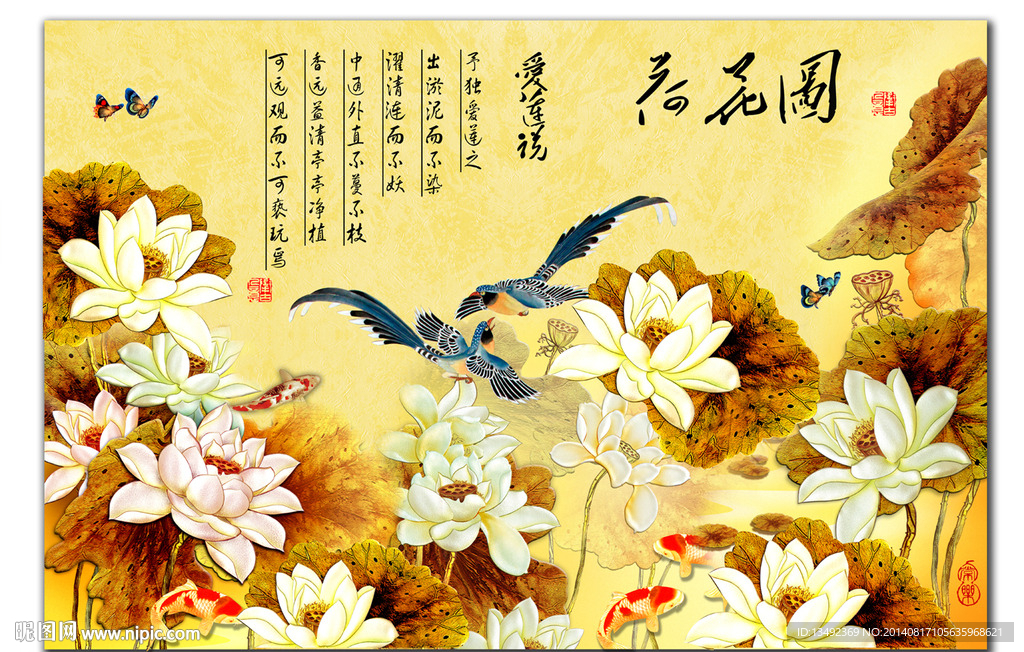 荷花圖
愛蓮说
予独爱莲之
出淤泥而不染
濯清涟而不妖
中通外直不蔓不枝
香远益清亭亭净植
可远观而不可亵玩焉
昵图网 www.nipic.com
ID:13492369 NO:20140817105635968621